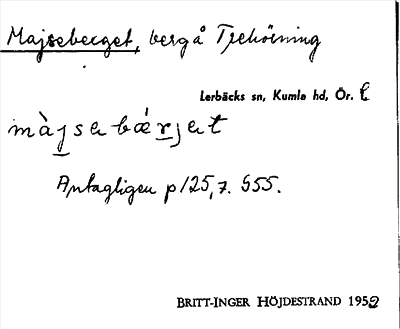 Majseberget, berg å Trehörning
Lerbäcks sn, Kumla hd, Ör. l
màjsebǽrjet
Antagligen p 125, 7. 555.
BRITT-INGER HÖJDESTRAND 1952